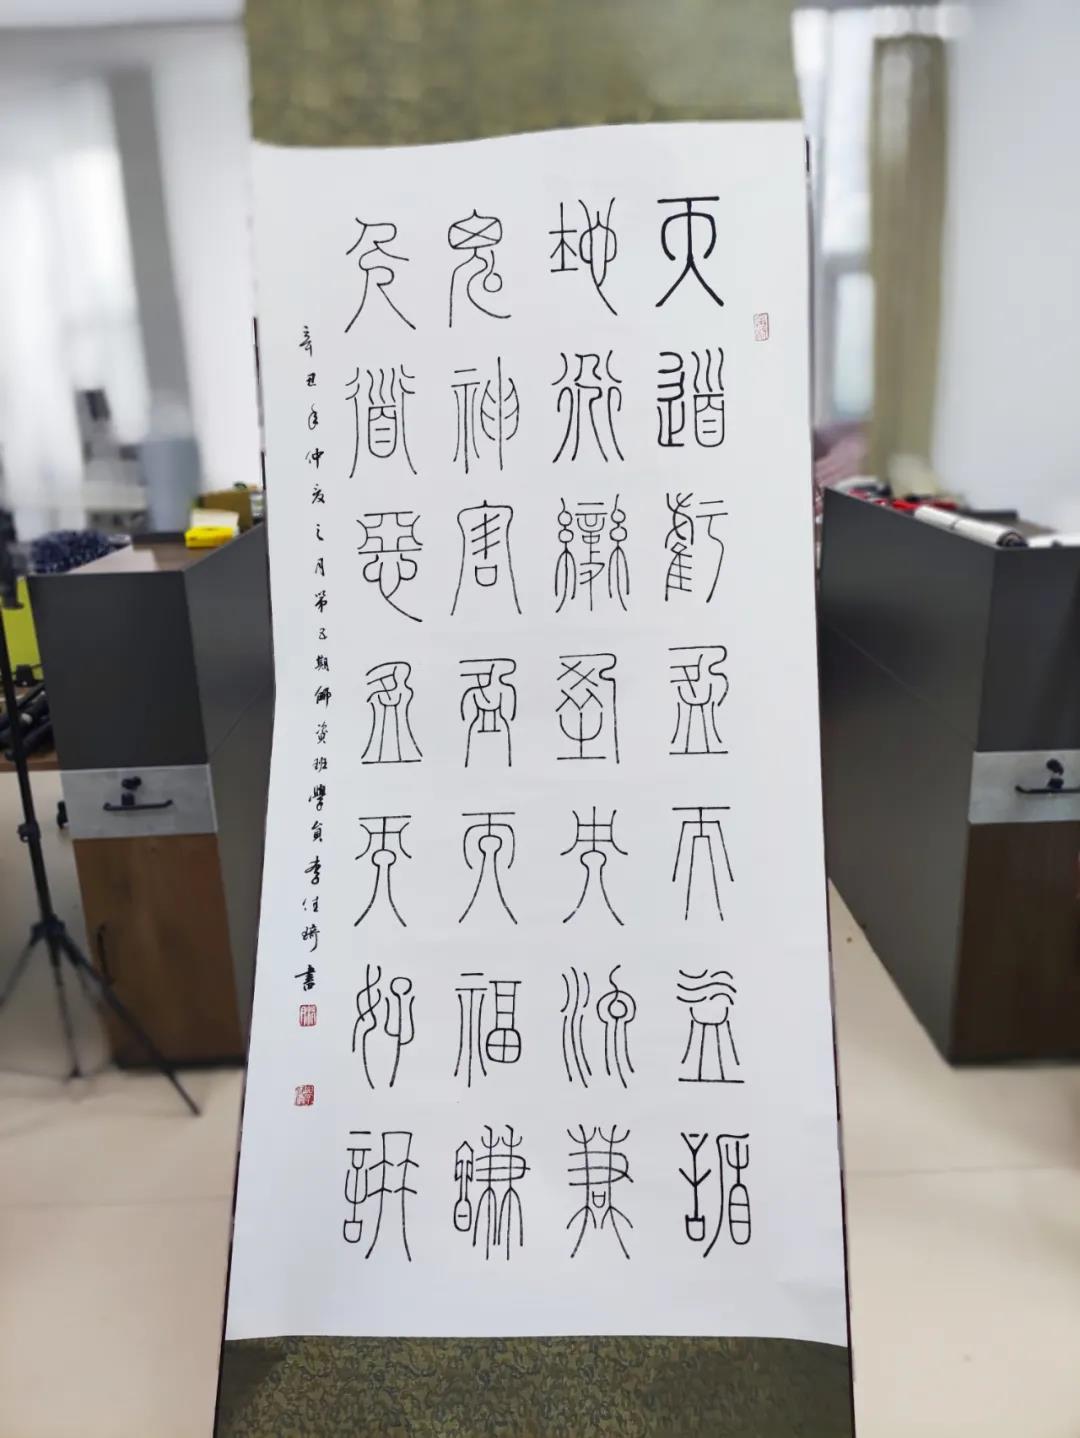 天道虧盈而益謙
地道變盈而流謙
鬼神害盈而福謙
人道惡盈而好謙
辛丑年仲夏之月第五期師資班學員李佳琦書